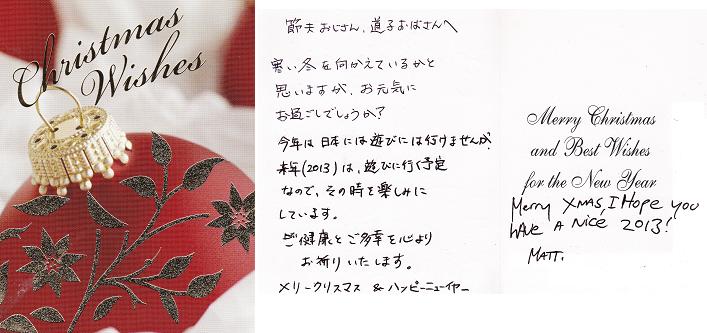 Christmas
Wishes
節夫おじさん、道子おばさんへ
寒い冬を向かえているかと
思いますが、お元気に
お過ごしでしょうか?
今年は日本には遊びには行けませんが
来年(2013)は、遊びに行く予定
なので、その時を楽しみに
しています。
ご健康とご多幸を心より
お祈りいたします。
メリークリスマス & ハッピーニューイヤー
Merry Christmas
and Best Wishes
for the New Year
Merry Xmas, I Hope you
HAVE A Nice 2013!
MATT.